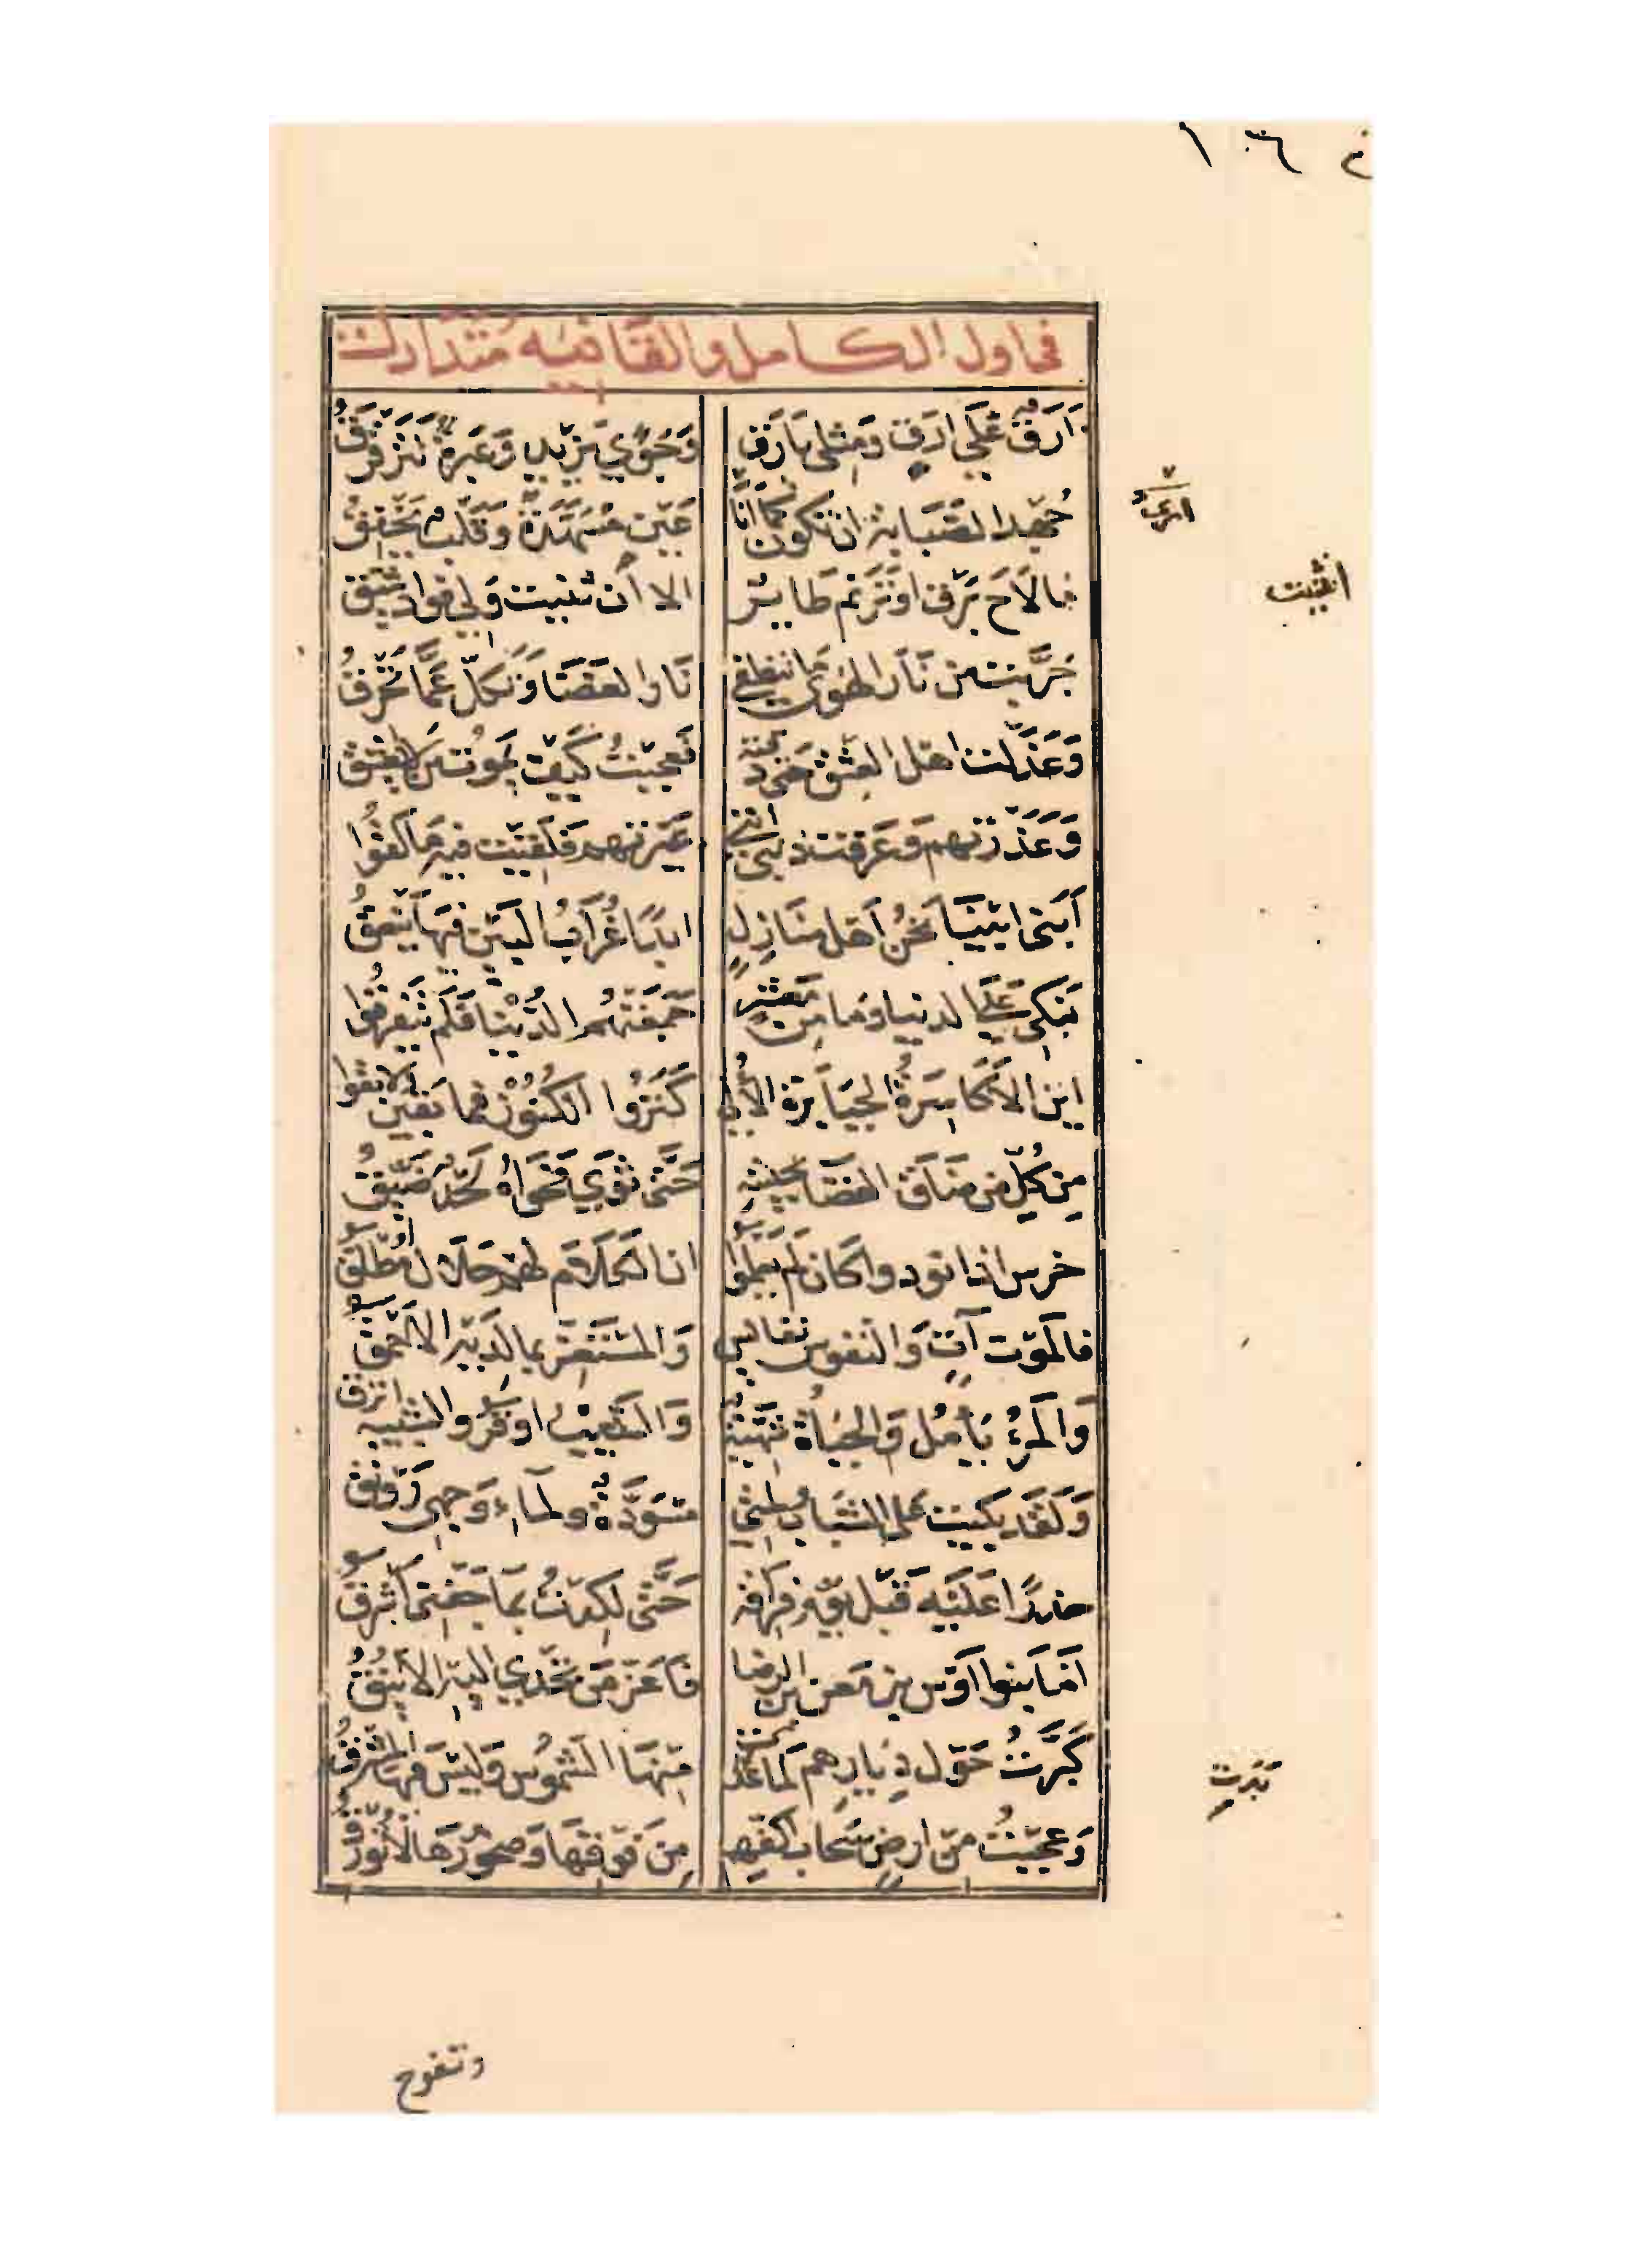 في اول الكامل والقافيه مُتَدَارك
اَرَقٌ عَلَي ارَقٍ وَمِثلي يَارَقُ وَجَوًي يَزِيد وَعَبرةٌ تَتَرَقرَقُ
جُهدا لصَّبَابة ان تكون كما انَا عَين مُسَهَّدَةٌ وَقَلب يَخفِقُ
ما لاَح بَرق اوتَرَنم طَاير الا اُن ثنيت وَلي فواد شَيق
جَرَّبت من نَار الهَوي ما تنطفي نَارا لغضَا وَتكلّ عَمَّا تُحرقُ
وَعَذَلت اهل العِشق حَتي ذقته فعجبتُ كَيف يَموت من لا يعشق
وَعَذَرتهم وَعَرَفت ذَنبي انني عَيَّرتهم فلَقِيت فيه مَا لَقُوا
اَبَني ابِينَا نحنُ اَهل منازِلٍ ابدًا غُرَابُ البَين فيهَا يَنعقُ
نَبكي عَلي الدنيا وَما مِن مَعشرٍ جَمَعَتهُم الدُّنيَا فَلَم يَتَفرقوا
اين الاَكَاسِرَةُ الجبَابرَة الأُلي كَنَزُوا الكُنُوزَ فما بَقين وَلا بقوا
مِن كُلّ من ضَاقَ الفضَا بجيشه حَتَّي ثوَي فَحَواهُ لَحدٌ ضَيِّقُ
خرس اذا نودوا كَان لَم يَعلَموا ان الكَلاَم لهم حَلاَل مُطلَقُ
فالمَوت آتٍ وَالنفوس نفايس وَالمُستَغِرّ بما لَدَيه الاَحمَقُ
وَالمَرءُ يَأمُل وَالحيَاة شَهيّةٌ وَالشَّيبُ اوقَر وَالشبيبه انزق
وَلَقَد بكَيت عَلي الشبَاب ولمتي مسوَدَّةٌ ولماءِ وَجهي رَونق
حذرًا عَلَيه قَبل يَوم فراقه حَتَّي لكِدتُ بمَا جَفني اَشرقُ
اَمَا بنوا اَوس بن مَعن بن الرضا فَاعَز مَن تحدَي اليه الاَينُقُ
كَبَّرتُ حَول دِيارِهم لما بَدَت مِنهَا الشموُس وَليسَ فيهَا المَشرقُ
وَعجبتُ من ارضٍ سَحاب اكفهم مِن فَوقِهَا وَصخورُهَا لا تُورق
وتفوح